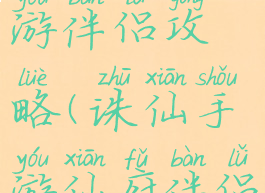 yóu bàn lǚ gōng
游伴侣攻
lüè zhū xiān shǒu
略(诛仙手
yóu xiān fǔ bàn lǚ
游仙府伴侣